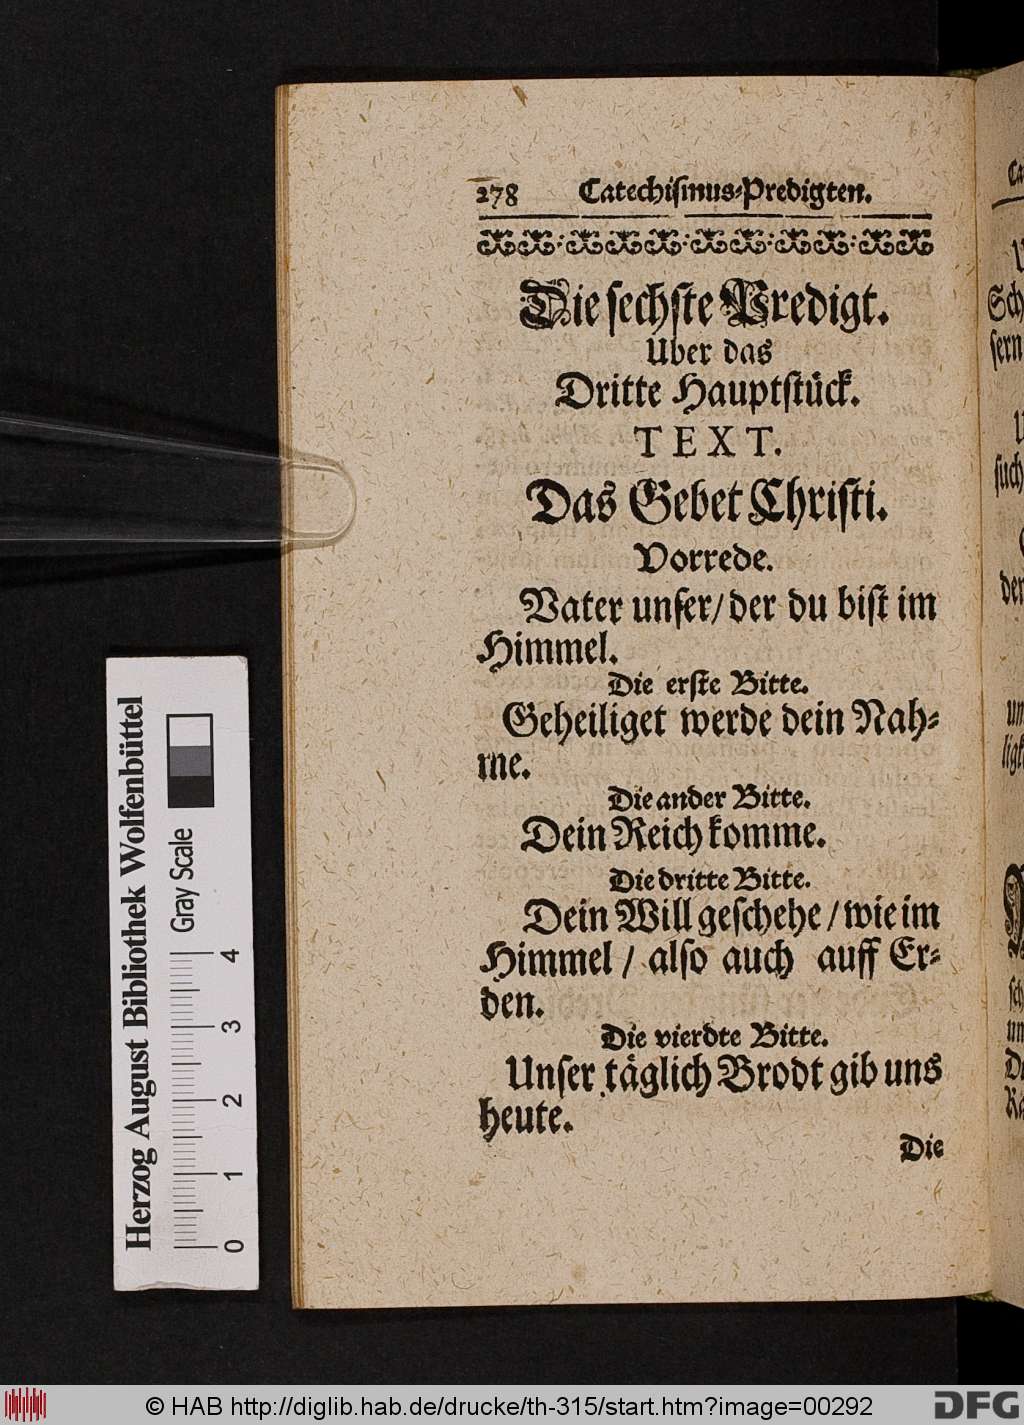 278 Catechismus-Predigten.
Die sechste Predigt.
Uber das
Dritte Hauptstück.
TEXT.
Das Gebet Christi.
Vorrede.
Vater unser/ der du bist im
Himmel.
Die erste Bitte.
Geheiliget werde dein Nah-
me.
Die ander Bitte.
Dein Reich komme.
Die dritte Bitte.
Dein Will geschehe / wie im
Himmel / also auch auff Er-
den.
Die vierdte Bitte.
Unser täglich Brodt gib uns
heute.
Die
Herzog August Bibliothek Wolfenbüttel
Gray Scale
0 1 2 3 4
© HAB http://diglib.hab.de/drucke/th-315/start.htm?image=00292
DFG